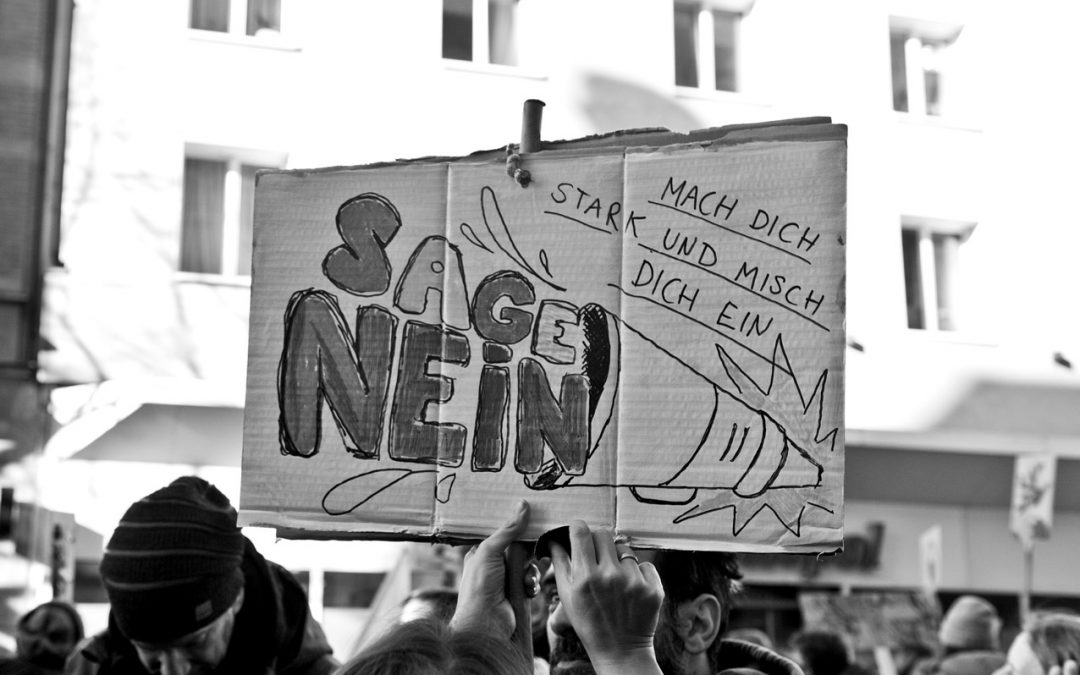 SAGE
NEiN
MACH DICH
STARK UND MISCH
DICH EIN